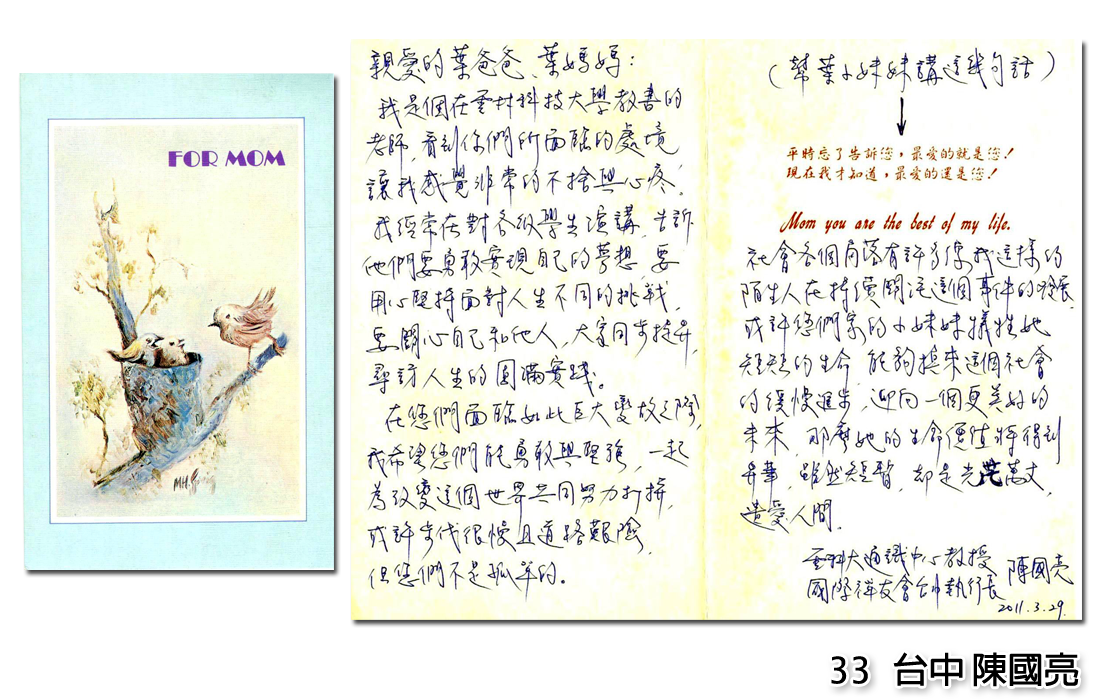 FOR MOM
親愛的葉爸爸、葉媽媽：
我是個在雲林科技大學教書的
老師，看到你們所面臨的處境，
讓我感覺非常的不捨與心疼，
我經常在對各級學生演講，告訴
他們要勇敢實現自己的夢想，要
用心堅持面對人生不同的挑戰，
要關心自己和他人，大家同步提昇，
尋訪人生的圓滿實踐。
在您們面臨如此巨大變故之際，
我希望您們能勇敢與堅強，一起
為改變這個世界共同努力打拼，
或許步伐很慢且道路艱險，
但您們不是孤單的。
（幫葉小妹妹講這幾句話）
平時忘了告訴您，最愛的就是您！
現在我才知道，最愛的還是您！
Mom you are the best of my life.
社會各個角落有許多像我這樣的
陌生人在持續關注這個事件的發展，
或許您們家的小妹妹犧牲她
短短的生命，能夠換來這個社會
的緩慢進步，迎向一個更美好的
未來，那麼她的生命價值將得到
昇華，雖然短暫，却是光芒萬丈，
遺愛人間。
雲科大通識中心教授
國際禪友會台中執行長 陳國亮
2011.3.29.
33 台中 陳國亮